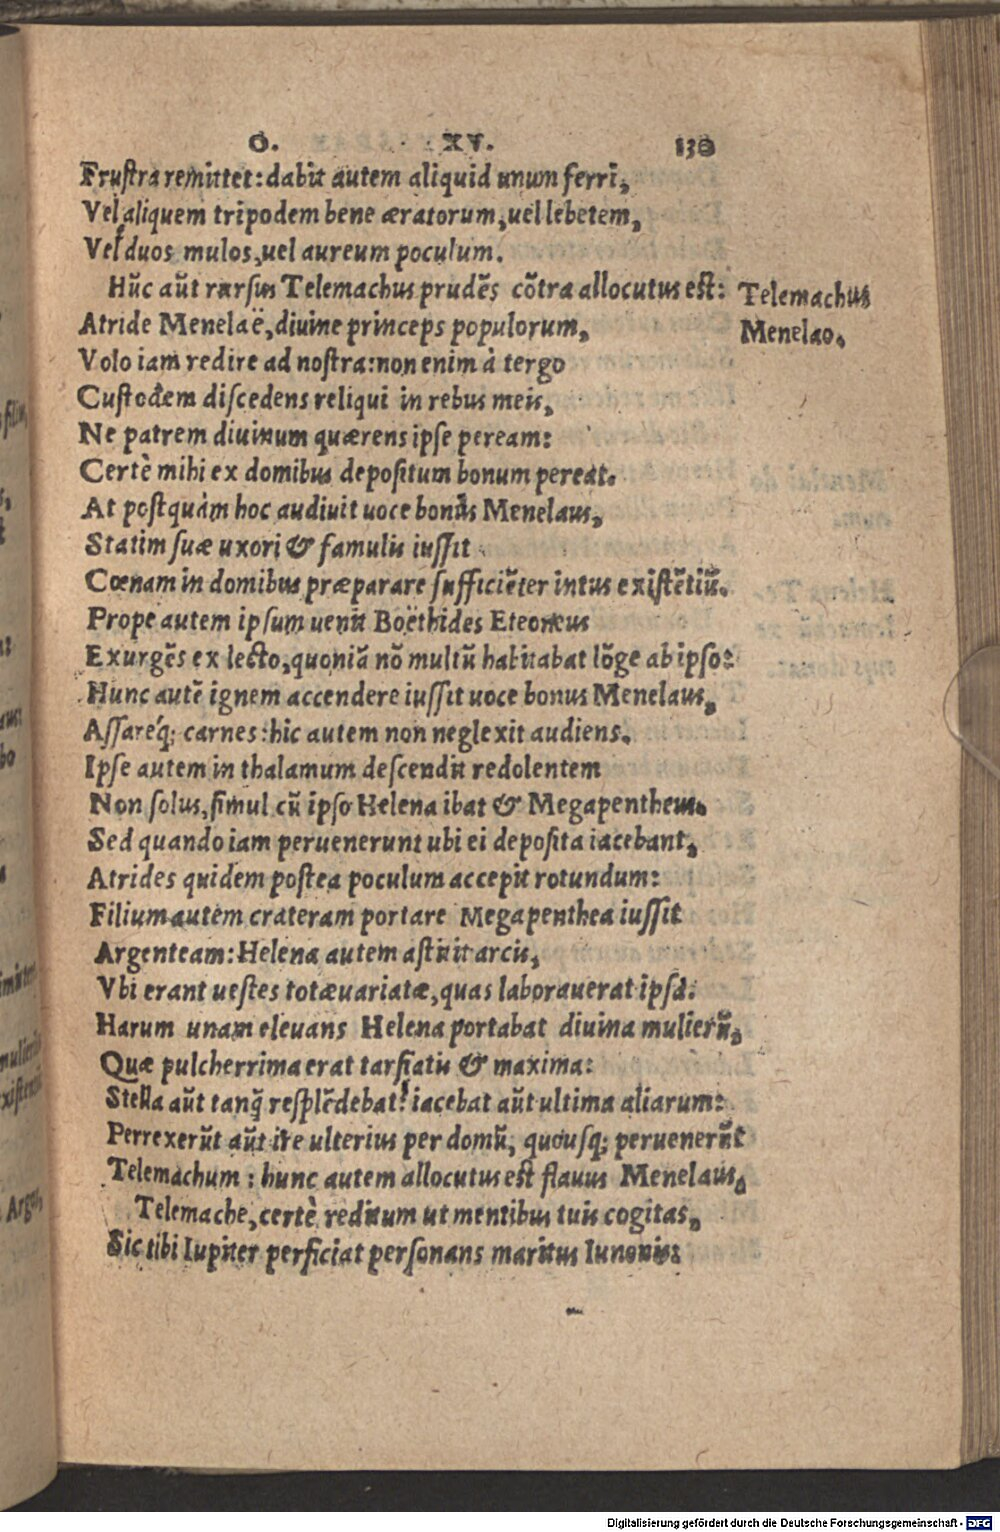 O. XV. 130
Frustra remittet: dabit autem aliquid unum ferri,
Vel aliquem tripodem bene æratorum, uel lebetem,
Vel duos mulos, uel aureum poculum.
Hũc aũt rursus Telemachus prudẽs cõtra allocutus est:
Telemachus
Atride Menelaë, diuine princeps populorum,
Menelao.
Volo iam redire ad nostra: non enim à tergo
Custodem discedens reliqui in rebus meis,
Ne patrem diuinum quærens ipse peream:
Certè mihi ex domibus depositum bonum pereat.
At postquàm hoc audiuit uoce bonus Menelaus,
Statim suæ uxori & famulis iussit
Cœnam in domibus præparare sufficiẽter intus existẽtiũ.
Prope autem ipsum uenit Boëthides Eteoneus
Exurgẽs ex lecto, quoniã nõ multũ habitabat lõge ab ipso:
Hunc autẽ ignem accendere iussit uoce bonus Menelaus,
Assareq́; carnes: hic autem non neglexit audiens.
Ipse autem in thalamum descendit redolentem
Non solus, simul cũ ipso Helena ibat & Megapentheus.
Sed quando iam peruenerunt ubi ei deposita iacebant,
Atrides quidem postea poculum accepit rotundum:
Filium autem crateram portare Megapenthea iussit
Argenteam: Helena autem astitit arcis,
Vbi erant uestes totæ uariatæ, quas laborauerat ipsa.
Harum unam eleuans Helena portabat diuina mulierũ,
Quæ pulcherrima erat tarsiatis & maxima:
Stella aũt tanq̃ resplẽdebat: iacebat aũt ultima aliarum:
Perrexerũt aũt ire ulterius per domũ, quousq; peruenerũt
Telemachum: hunc autem allocutus est flauus Menelaus,
Telemache, certè reditum ut mentibus tuis cogitas,
Sic tibi Iupiter perficiat personans maritus Iunonis:
Digitalisierung gefördert durch die Deutsche Forschungsgemeinschaft - DFG